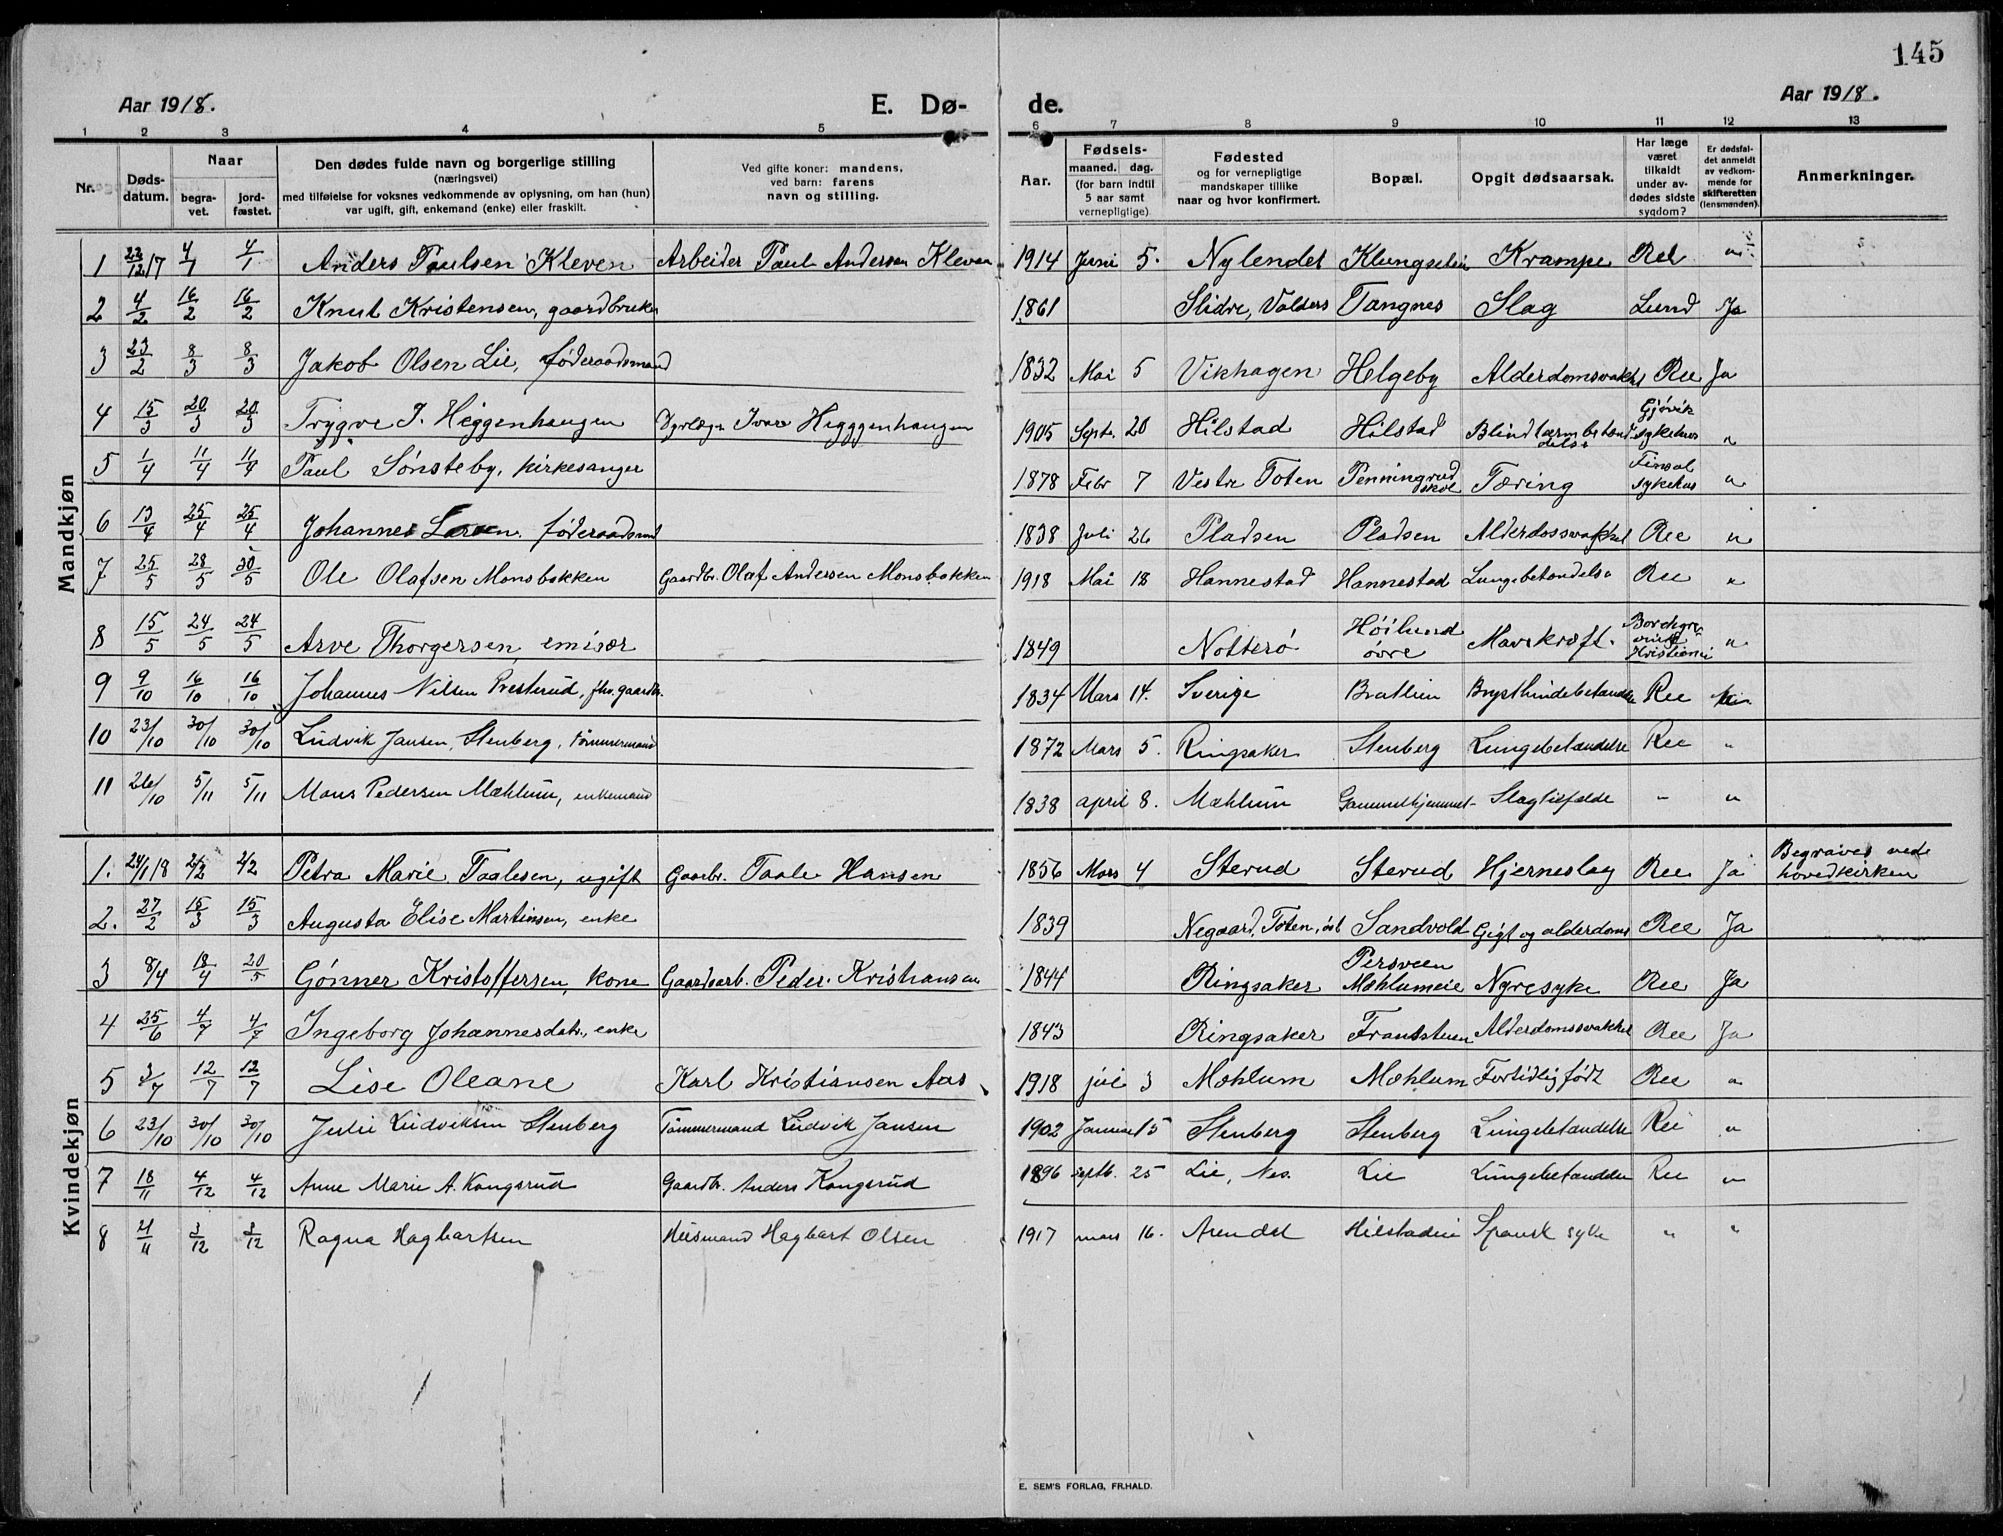 145
Aar 1918. E. Dø- de. Aar 1918.
1 2 3 4 5 6 7 8 9 10 11 12 13
Nr. Døds-datum. Naar begra-vet. jord-fæstet. Den dødes fulde navn og borgerlige stilling (næringsvei) med tilføielse for voksnes vedkommende av oplysning, om han (hun) var ugift, gift, enkemand (enke) eller fraskilt. Ved gifte koner: mandens, ved barn: farens navn og stilling. Aar. Fødsels- maaned. dag. (for barn indtil 5 aar samt vernepligtige) Fødested og for vernepligtige mandskaper tillike naar og hvor konfirmert. Bopæl. Opgit dødsaarsak. Har læge været tilkaldt under av-dødes sidste sygdom? Er dødsfal-det anmeldt av vedkom-mende for skifteretten (lensmanden). Anmerkninger.
Mandkjøn
1 22/12 17 4/1 4/1 Anders Paulsen Kleven Arbeider Paul Andersen Kleven 1914 Juni 5. Nylendet Klungseteie Krampe Ree
2 4/2 16/2 16/2 Knut Kristensen, gaardbruker 1861 Slidre, Valders Tangnes Slag Lund Ja
3 23/2 8/3 8/3 Jakob Olsen Lie, føderaadsmand 1832 Mai 5 Vikhagen Helgeby Alderdomsvakhet Ree Ja
4 15/3 20/3 20/3 Trygve I. Heggenhaugen Dyrlæge Ivar Hegggenhaugen 1905 Septr. 20 Hilstad Hilstad Blindtarmbetændelse Gjøvik sykehus "
5 1/4 11/4 11/4 Paul Sønsteby, kirkesanger 1878 Febr 7 Vestre Toten Penningrud skole Tæring sykehus "
6 13/4 25/4 25/4 Johannes føderaadsmd 1838 Juli 26 Pladsen Pladsen Alderdossvakhet Ree "
7 25/5 28/5 30/5 Ole Olafsen Monsbakken Gaardbr. Olaf Andersen Monsbakken 1918 Mai 18 Hannestad Hannestad Lungebetændelse Ree "
8 15/5 24/5 24/5 Arve Thorgersen, emisær 1849 Notterø Høilund øvre Mavekræft. Kristiania "
9 9/10 16/10 16/10 Johannes Nilsen Presterud, fhv. gaardbr. 1834 Mars 14. Sverige Bratlien Brysthindebetændelse Ree
10 23/10 30/10 30/10 Ludvik Jansen, Stenberg, tømmermand 1872 Mars 5. Ringsaker Stenberg Lungebetændelse Ree "
11 26/10 5/11 5/11 Mons Pedersen Mæhlum, enkemand 1838 april 8. Mæhlum Gammelhjemmet Slagtilfælde " "
Kvindekjøn
1. 24/1 18 2/2 2/2 Petra Marie Taalesen, ugift Gaarbr. Taale Hansen 1856 Mars 4 Sterud Sterud Hjerneslag Ree Ja Begraves ved hovedkirken
2. 27/2 15/3 15/3 Augusta Elise Martinsen, enke 1839 Negaard, Toten, øst Sandvold Gigt og alderdoms Ree Ja
3 8/4 18/4 20/5 Gønner Kristoffersen, kone Gaardarb. Peder Kristiansen 1844 Ringsaker Persveen Mæhlumeie Nyresyke Ree Ja
4 25/6 4/7 4/7 Ingeborg Johannesdatr., enke 1843 Ringsaker Alderdomssvakhet Ree Ja
5 3/7 12/7 12/7 Lise Oleane Karl Kristiansen Aas 1918 juli 3 Mæhlum Mæhlum Fortidlig født Ree "
6 23/10 30/10 30/10 Julie Ludviksen Stenberg Tømmermand Ludvik Jansen 1902 Januar 15 Stenberg Stenberg Lungebetændelse Ree "
7 18/11 4/12 4/12 Anne Marie A. Kongsrud Gaardbr. Anders Kongsrud 1896 septb. 25 Lie, Nes. Lie Lungebetændelse Ree "
8 4/11 3/12 3/12 Ragna Hagbartsen Husmand Hagbart Olsen 1917 mars 16. Arendal Hilstadeie Spansk syke " "
E. SEM'S FORLAG, FR.HALD.